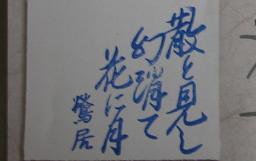 散と見し
幻消て
花に月
鶯居